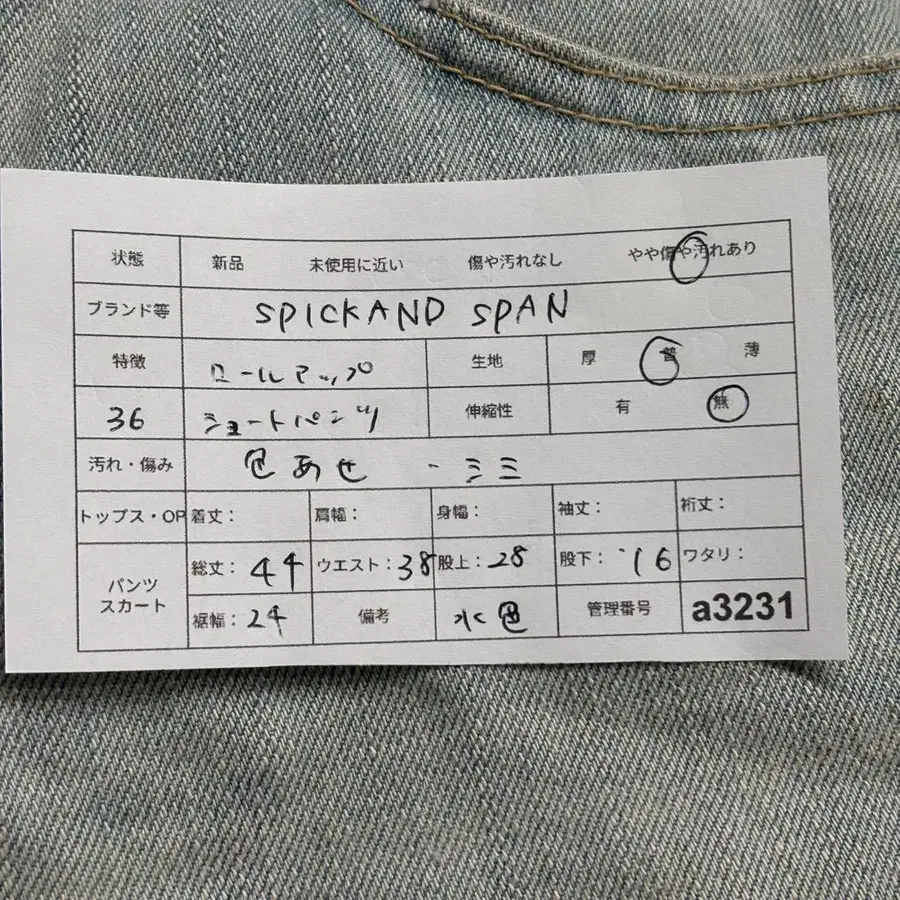 状態 新品 未使用に近い 傷や汚れなし やや傷や汚れあり
ブランド等 SPICKAND SPAN
特徴 ロールアップ 生地 厚 普 薄
36 ショートパンツ 伸縮性 有 無
汚れ・傷み 色あせ ・シミ
トップス・OP 着丈： 肩幅： 身幅： 袖丈： 裄丈：
パンツ スカート 総丈：44 ウエスト：38 股上：28 股下：16 ワタリ：
裾幅：24 備考 水色 管理番号 a3231